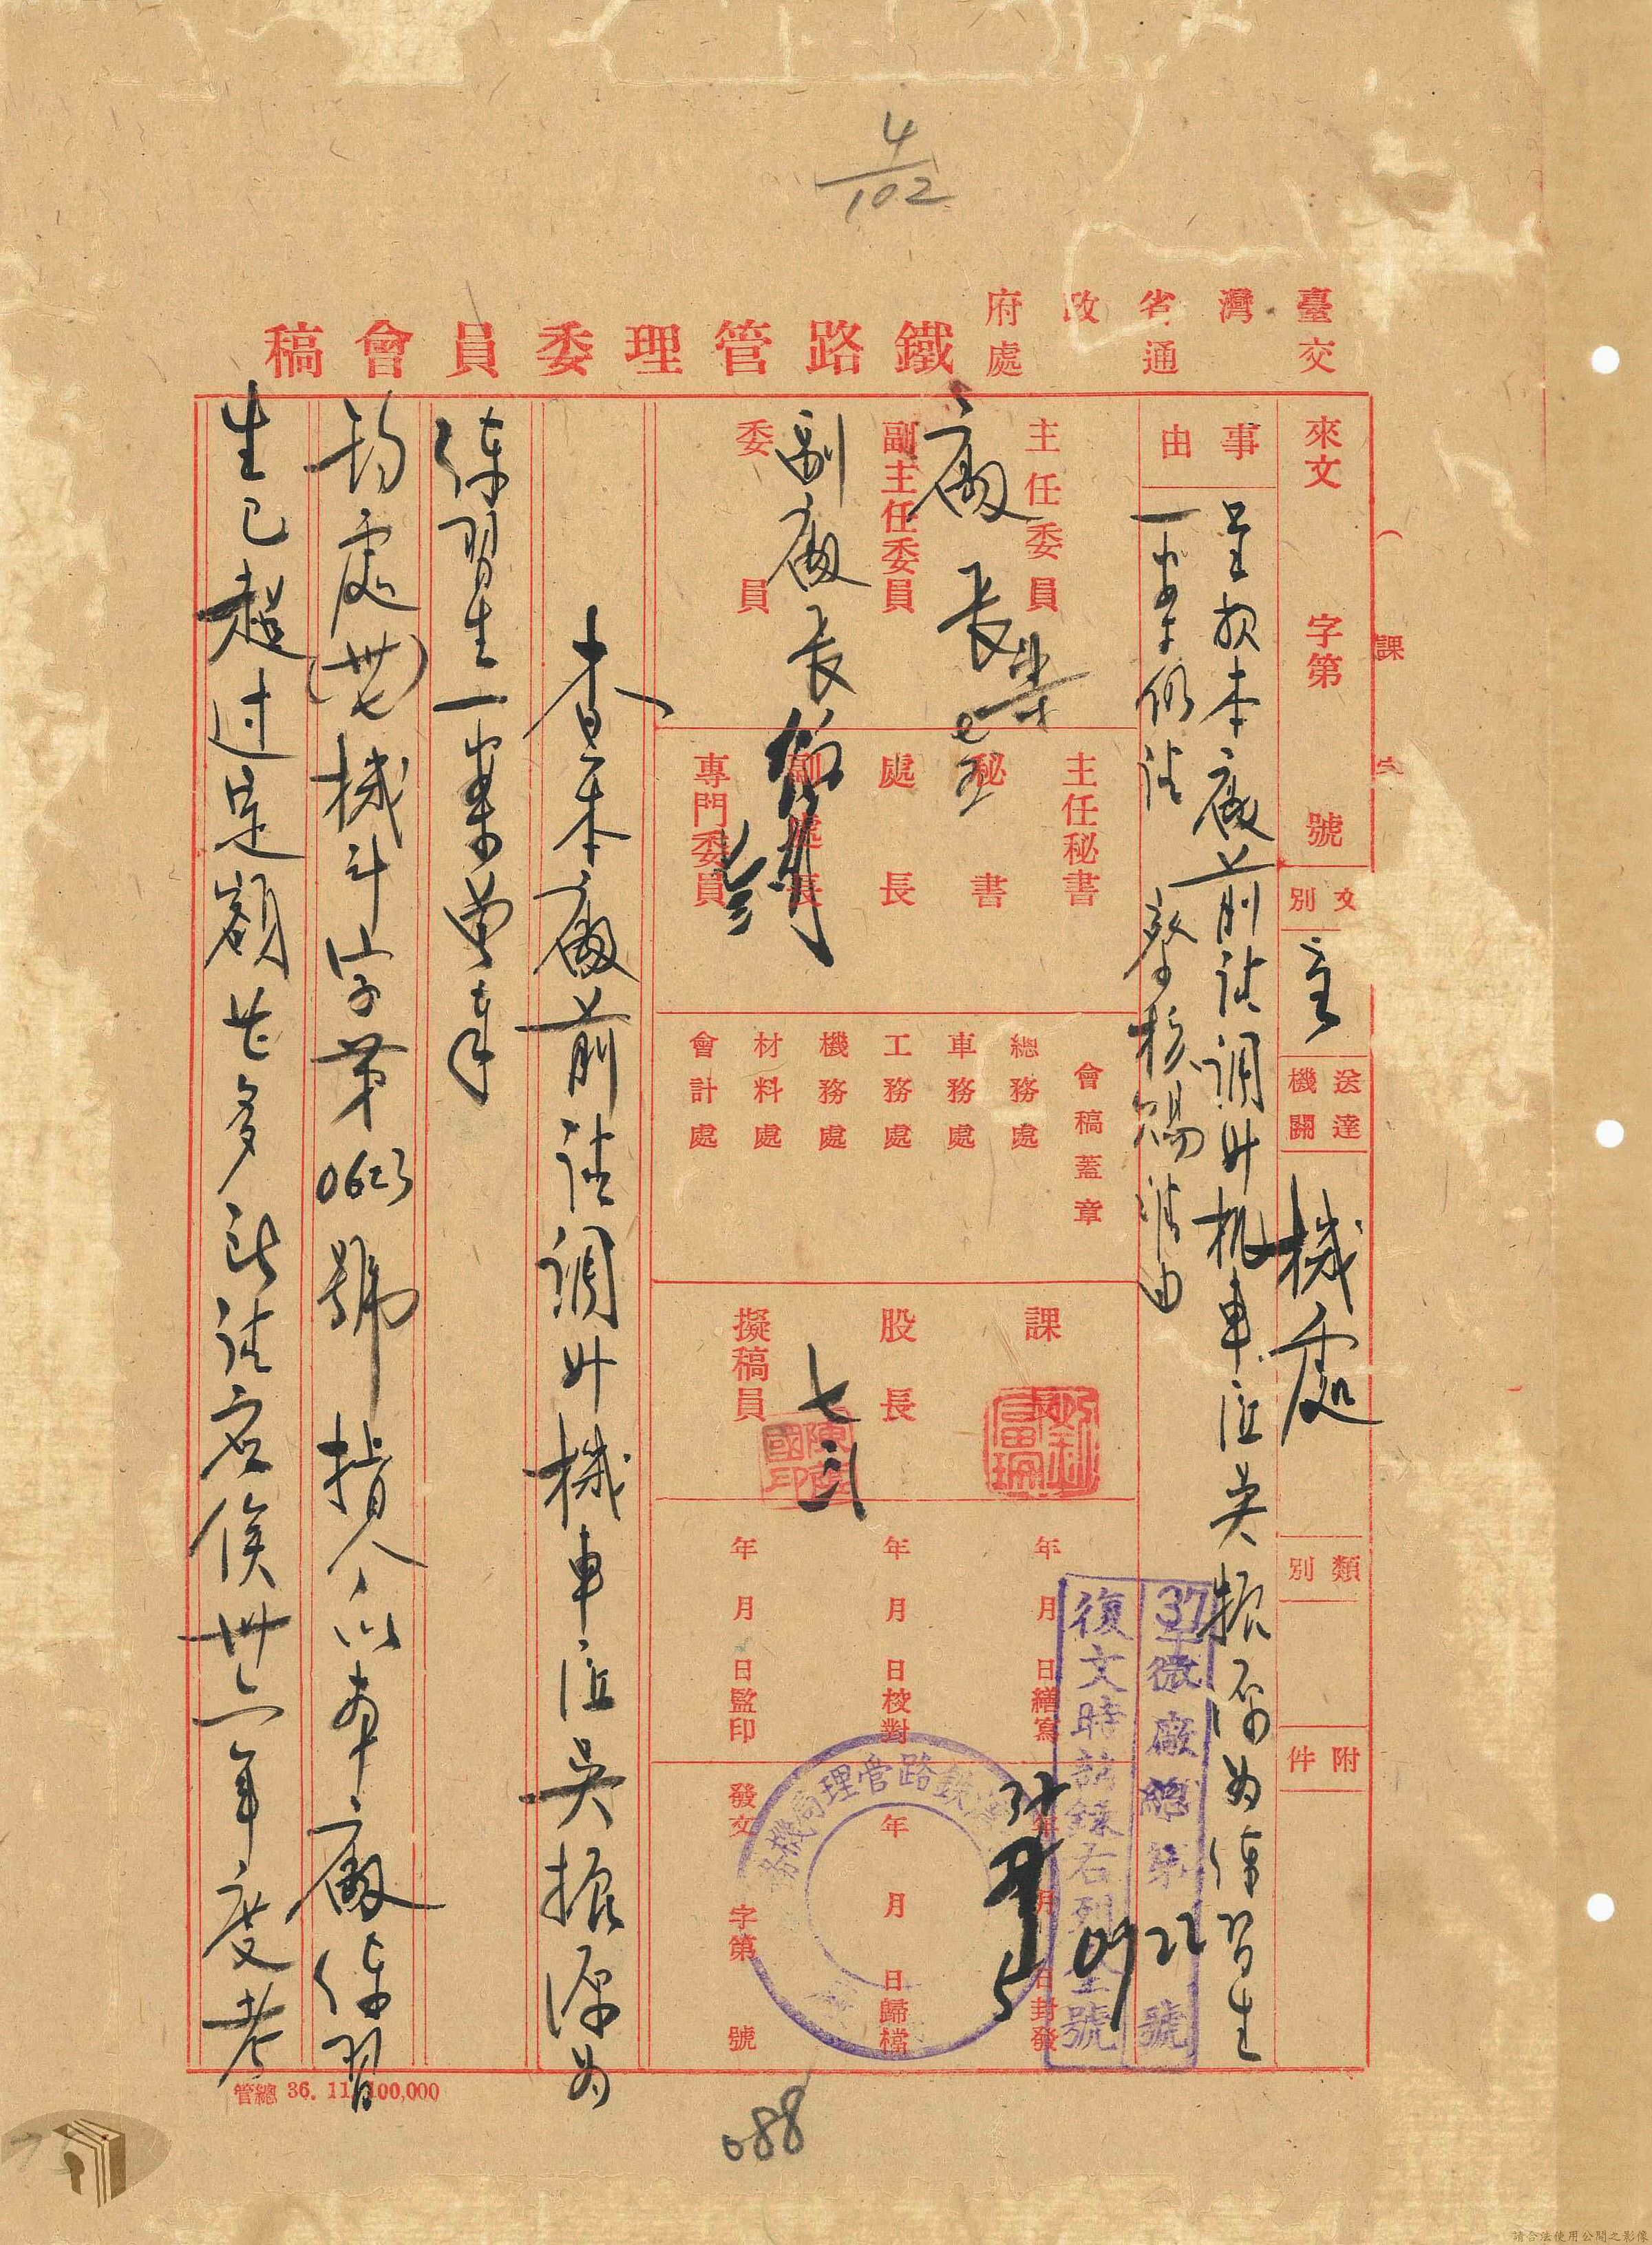 4/102
臺灣省政府
交通處
鐵路管理委員會稿
來文 字第 號
文別 呈
送達機關 機處
類別
附件
事由
呈報本廠前請調升机車匠吴振源為練習生
一案仍請 察核賜准由
主任委員
副主任委員
委員
廠長
副廠長
主任秘書
秘書
處長
副處長
專門委員
會稿蓋章
總務處
車務處
工務處
機務處
材料處
會計處
課長
股長
擬稿員
七
年 月 日繕寫
年 月 日校對
年 月 日監印
年 月 日封發
年 月 日歸檔
發文 字第 號
37 廠總字第 0922 號
復文時請錄右列全號
查本廠前請調升機車匠吴振源為
練習生一案曾奉
鈞處(卅七)機斗字第0623號指令以本廠練習
生已超过定額甚多所請应俟卅六年度考
管總 36. 11. 100,000
088
請合法使用公開之影像